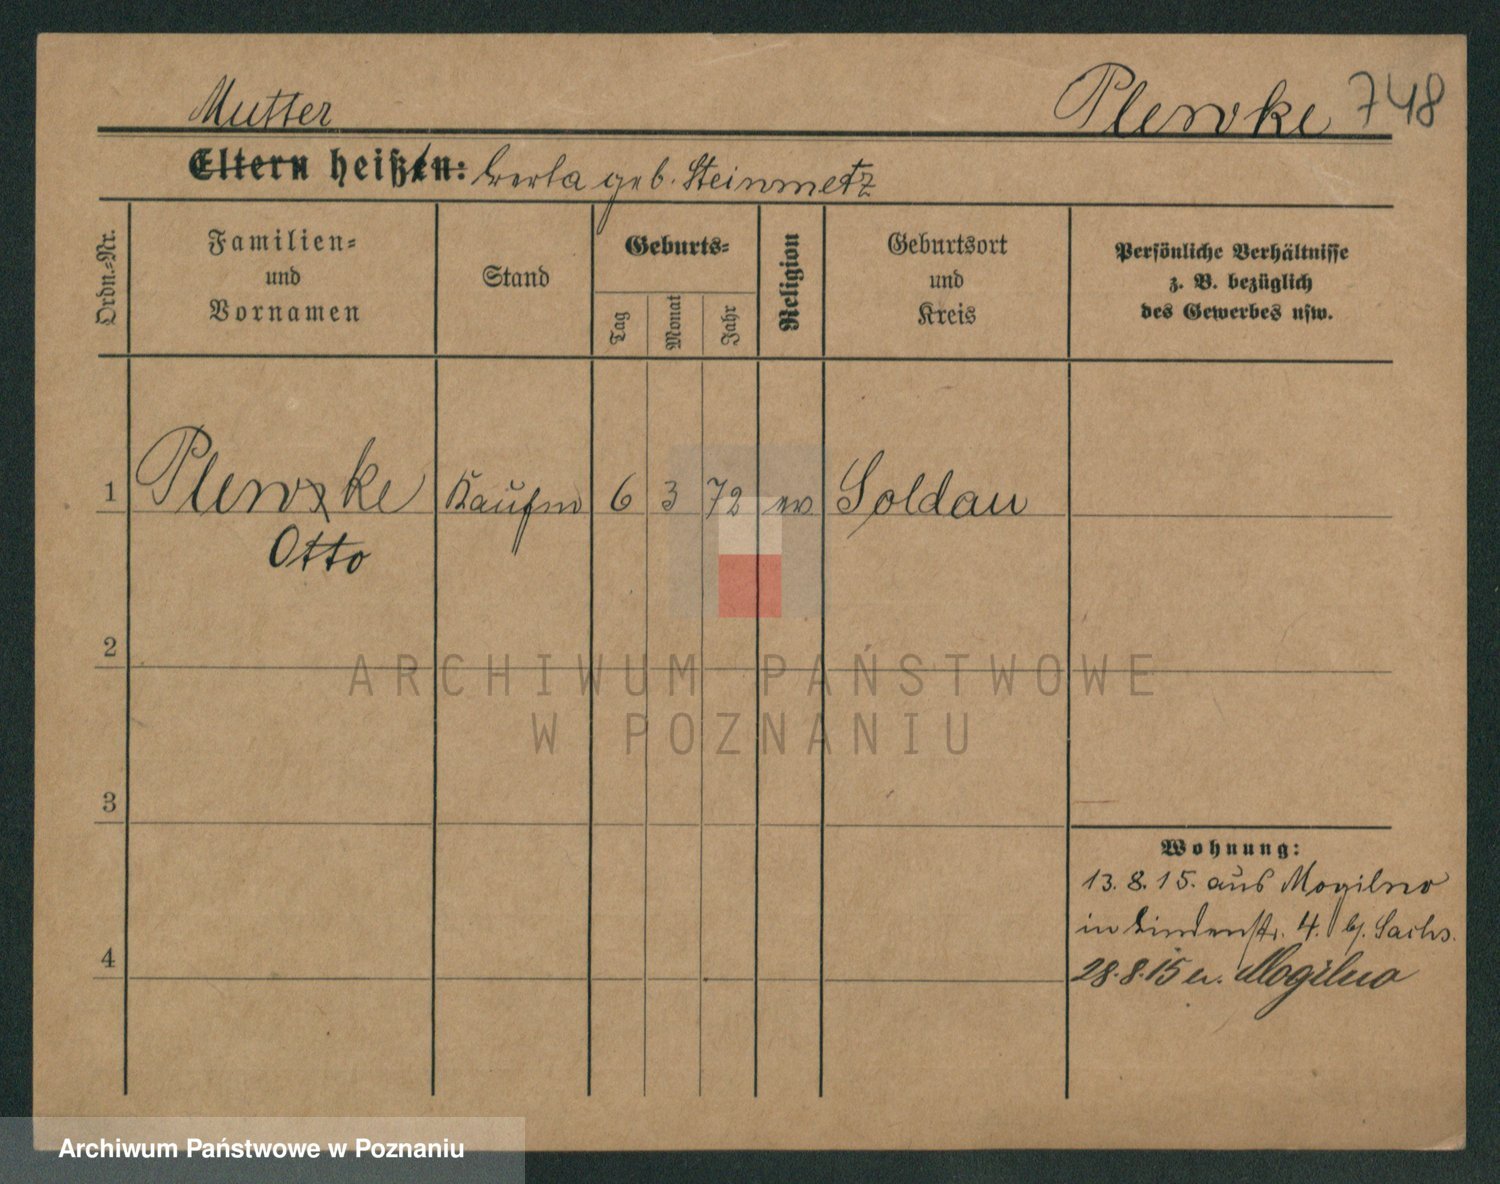 Mutter
Plewke 748
Eltern heißen: geb. Steinmetz
Ordn.-Nr.
Familien-
und
Vornamen
Stand
Geburts-
Tag
Monat
Jahr
Religion
Geburtsort
und
Kreis
Persönliche Verhältnisse
z. B. bezüglich
des Gewerbes usw.
1 Plewke Kaufm 6 3 72 ev Soldau
Otto
2
ARCHIWUM PAŃSTWOWE
W POZNANIU
3
Wohnung:
13. 8. 15. aus Mogilno
in Lindenstr. 4. bj. Sachs.
4
28.8.15 n. Mogilno
Archiwum Państwowe w Poznaniu